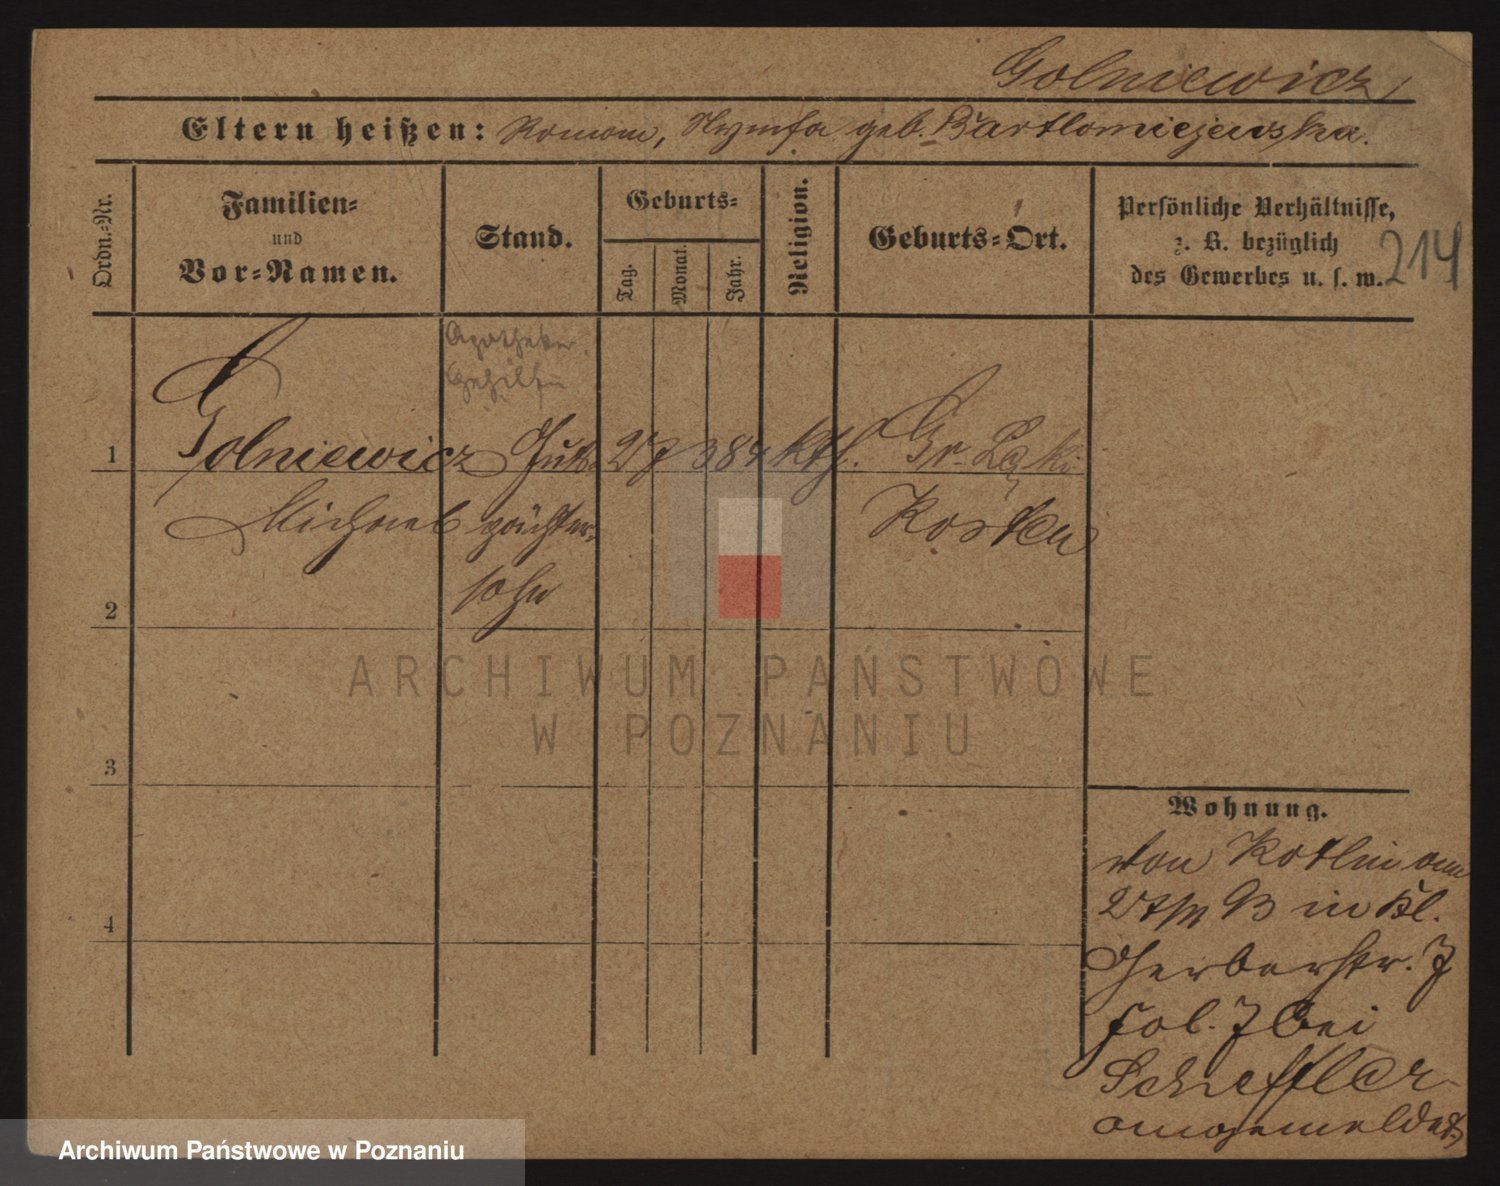 Golniewicz
Eltern heißen: Roman, Nymfa geb. Bartlomiejewska.
Ordn.-Nr.
Familien-
und
Vor-Namen.
Stand.
Geburts-
Tag.
Monat.
Jahr.
Religion.
Geburts-Ort.
Persönliche Verhältnisse,
z. B. bezüglich
des Gewerbes u. s. w.
214
Apotheker
Gehilfe
1 Golniewicz Guts 27 3 84 kth. Gr. Łęki
Michael pächter- Kosten
sohn
2
3
4
Wohnung.
von Kotlin am
in Kl.
Gerberstr. 7
fol. 7 bei
Scheffler
angemeldet
ARCHIWUM PAŃSTWOWE
W POZNANIU
Archiwum Państwowe w Poznaniu